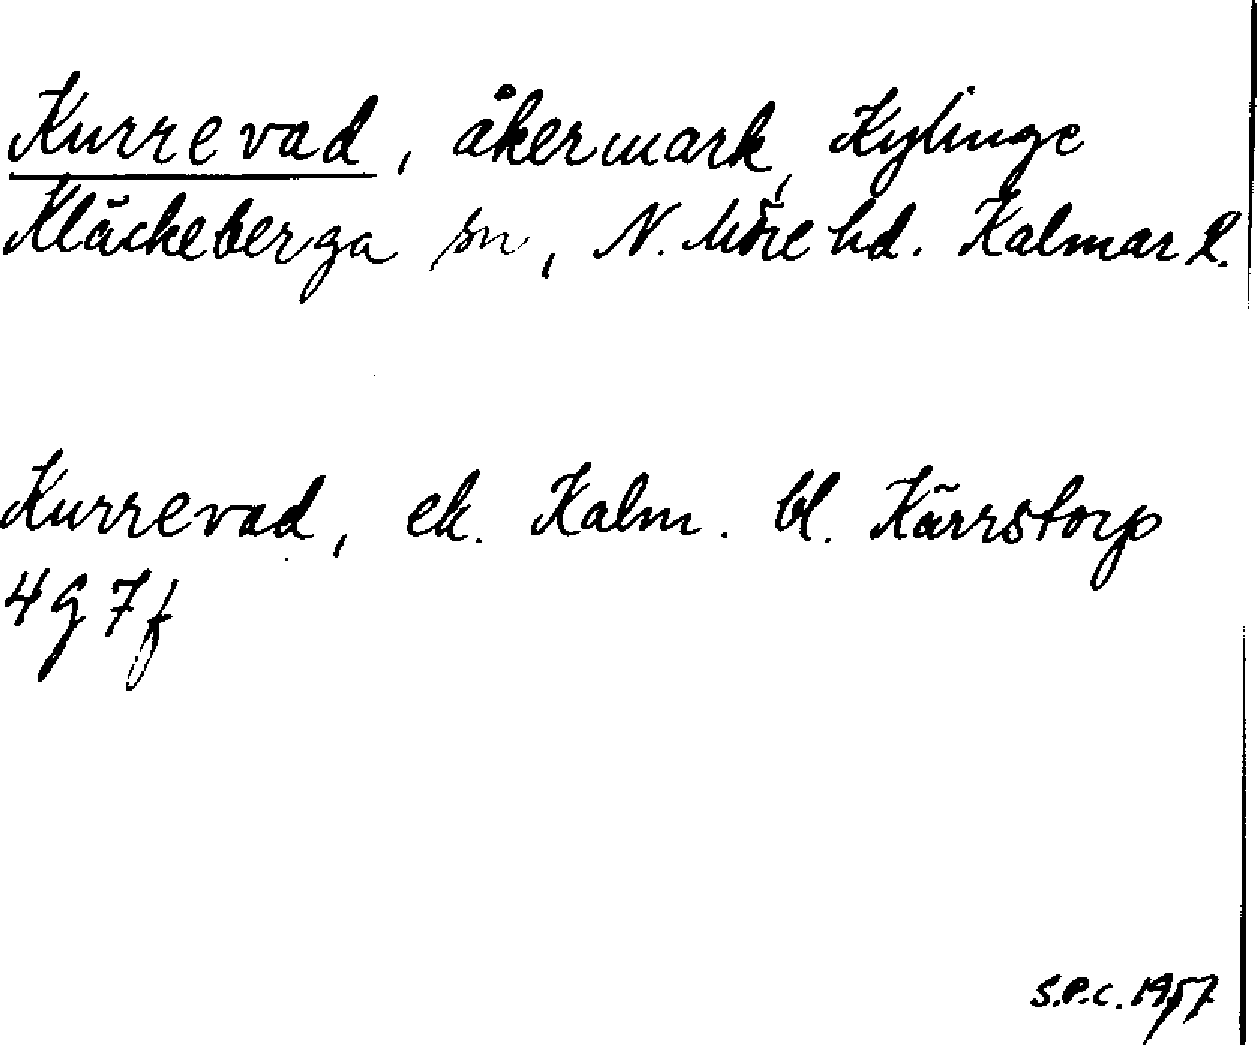 Kurrevad, åkermark, Kylinge
Kläckeberga sn, N. Möre hd. Kalmar l.
Kurrevad, ek. Kalm. bl. Kärrstorp
4 G 7 f
S.P.C. 1957